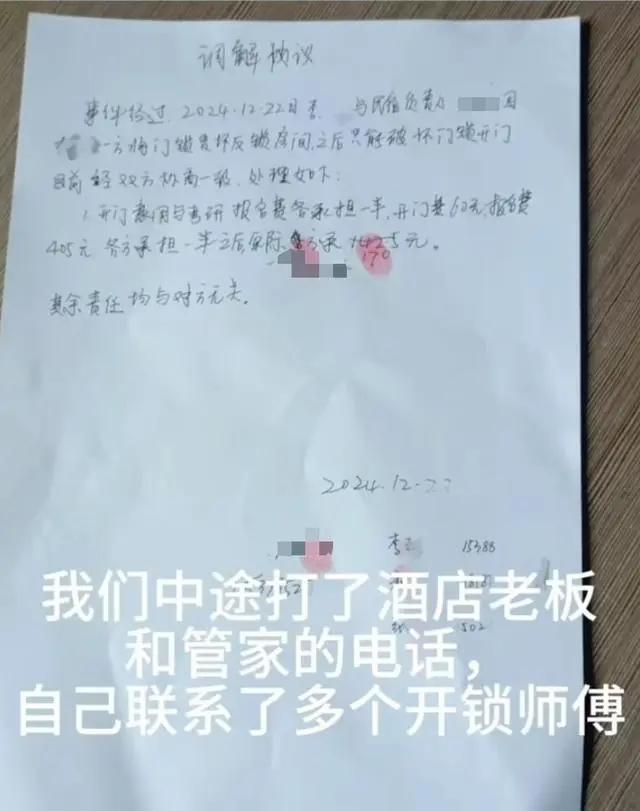 调解协议
事件经过，2024.12.22日 与民宿负责人 因
一方将门锁损坏反锁房间，之后只能破坏门锁开门
目前经双方协商一致，处理如下：
1.开门费用与考研报名费各承担一半，开门费60元，报名费
405元 各方承担一半之后实际 方承 元。
170
其余责任均与对方无关。
2024.12.22
李 15388
502
我们中途打了酒店老板
和管家的电话，
自己联系了多个开锁师傅